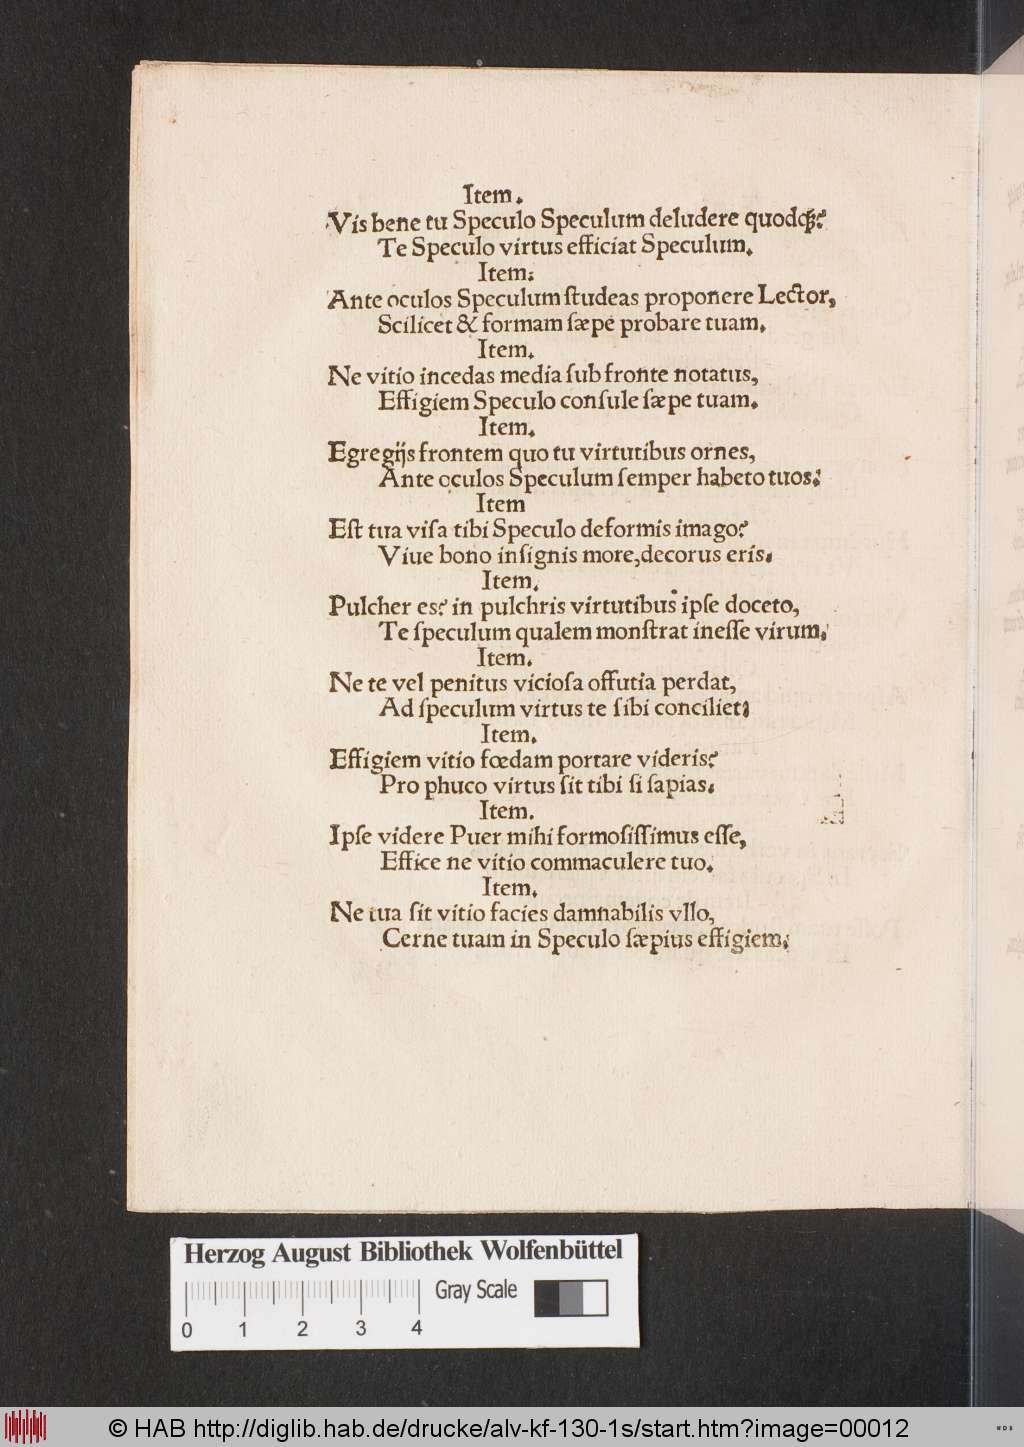 Item.
Vis bene tu Speculo Speculum deludere quodqꝫ?
Te Speculo virtus efficiat Speculum.
Item:
Ante oculos Speculum ſtudeas proponere Lector,
Scilicet & formam ſæpe probare tuam.
Item.
Ne vitio incedas media ſub fronte notatus,
Effigiem Speculo conſule ſæpe tuam.
Item.
Egregijs frontem quo tu virtutibus ornes,
Ante oculos Speculum ſemper habeto tuos:
Item
Eſt tua viſa tibi Speculo deformis imago?
Viue bono inſignis more, decorus eris.
Item.
Pulcher es? in pulchris virtutibus ipſe doceto,
Te ſpeculum qualem monſtrat ineſſe virum.
Item.
Ne te vel penitus vicioſa offutia perdat,
Ad ſpeculum virtus te ſibi conciliet:
Item.
Effigiem vitio fœdam portare videris?
Pro phuco virtus ſit tibi ſi ſapias.
Item.
Ipſe videre Puer mihi formoſiſſimus eſſe,
Effice ne vitio commaculere tuo.
Item.
Ne tua ſit vitio facies damnabilis vllo,
Cerne tuam in Speculo ſæpius effigiem.
Herzog August Bibliothek Wolfenbüttel
Gray Scale
0 1 2 3 4
© HAB http://diglib.hab.de/drucke/alv-kf-130-1s/start.htm?image=00012